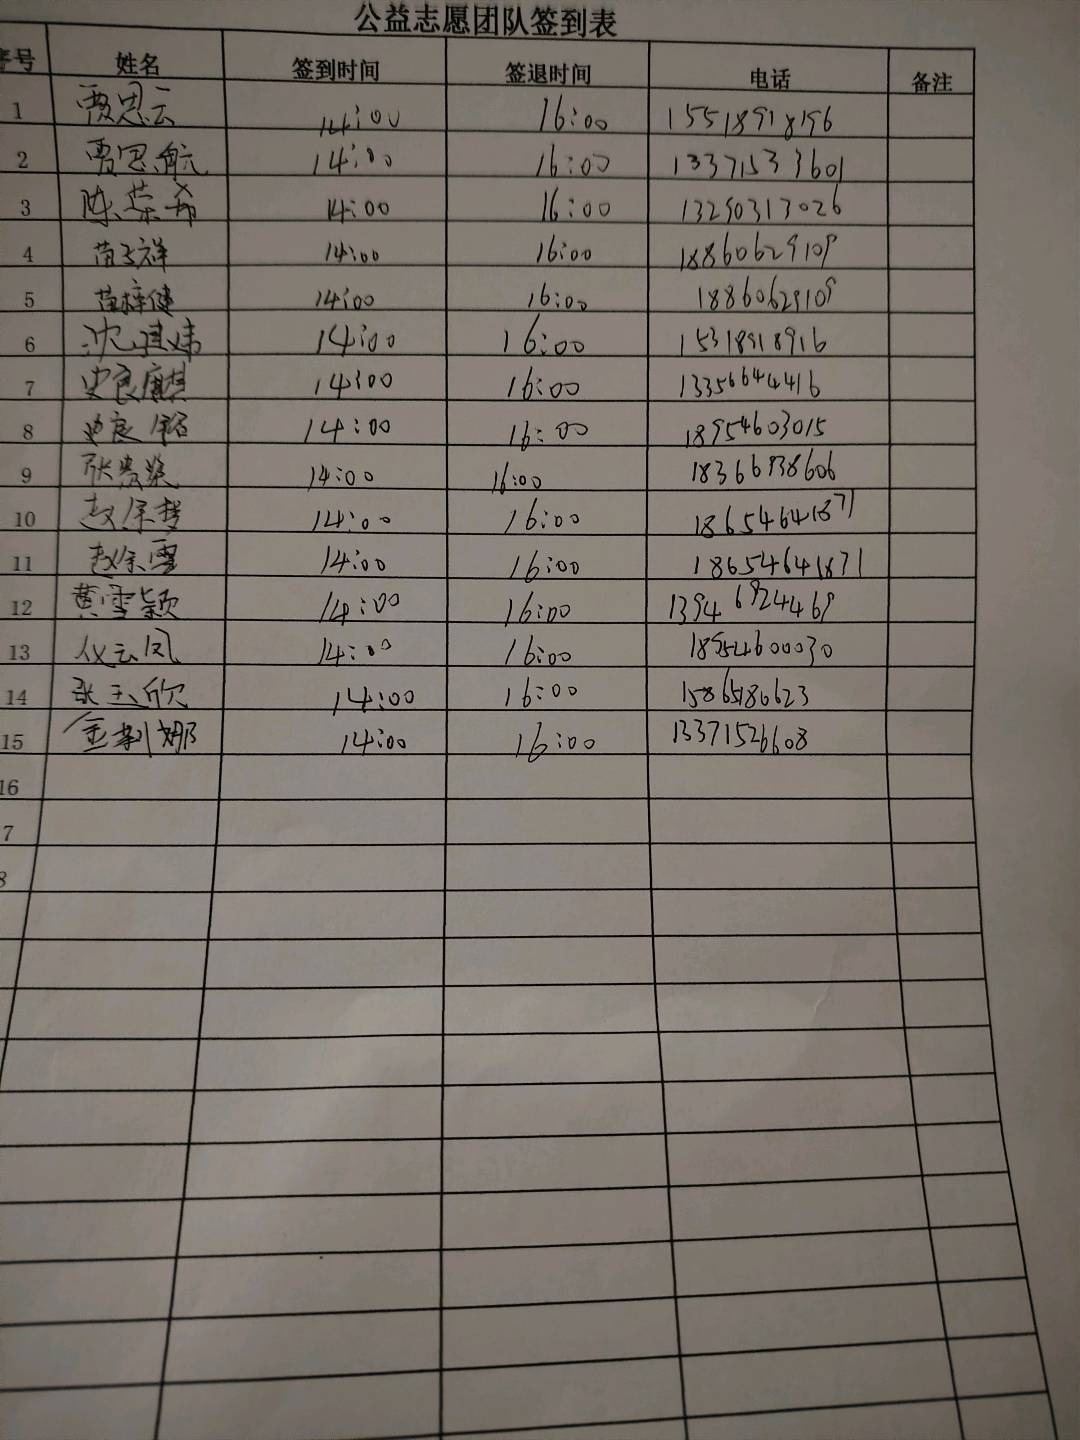 公益志愿团队签到表
序号 姓名 签到时间 签退时间 电话 备注
1 贾思云 14:00 16:00 15518918196
2 贾思航 14:00 16:00 13371533601
3 陈荣希 14:00 16:00 13290313026
4 苗子祥 14:00 16:00 18860629109
5 苗梓健 14:00 16:00 18860629109
6 沈建炜 14:00 16:00 15318918916
7 史良麒 14:00 16:00 13356644416
8 史良铭 14:00 16:00 18954603015
9 张 14:00 16:00 18366938606
10 赵徐梦 14:00 16:00 18654641871
11 赵徐雪 14:00 16:00 18654641871
12 黄雪颖 14:00 16:00 13946924469
13 仪云凤 14:00 16:00 18954600030
14 张玉欣 14:00 16:00 15865180623
15 金莉娜 14:00 16:00 13371526608
16
7
8